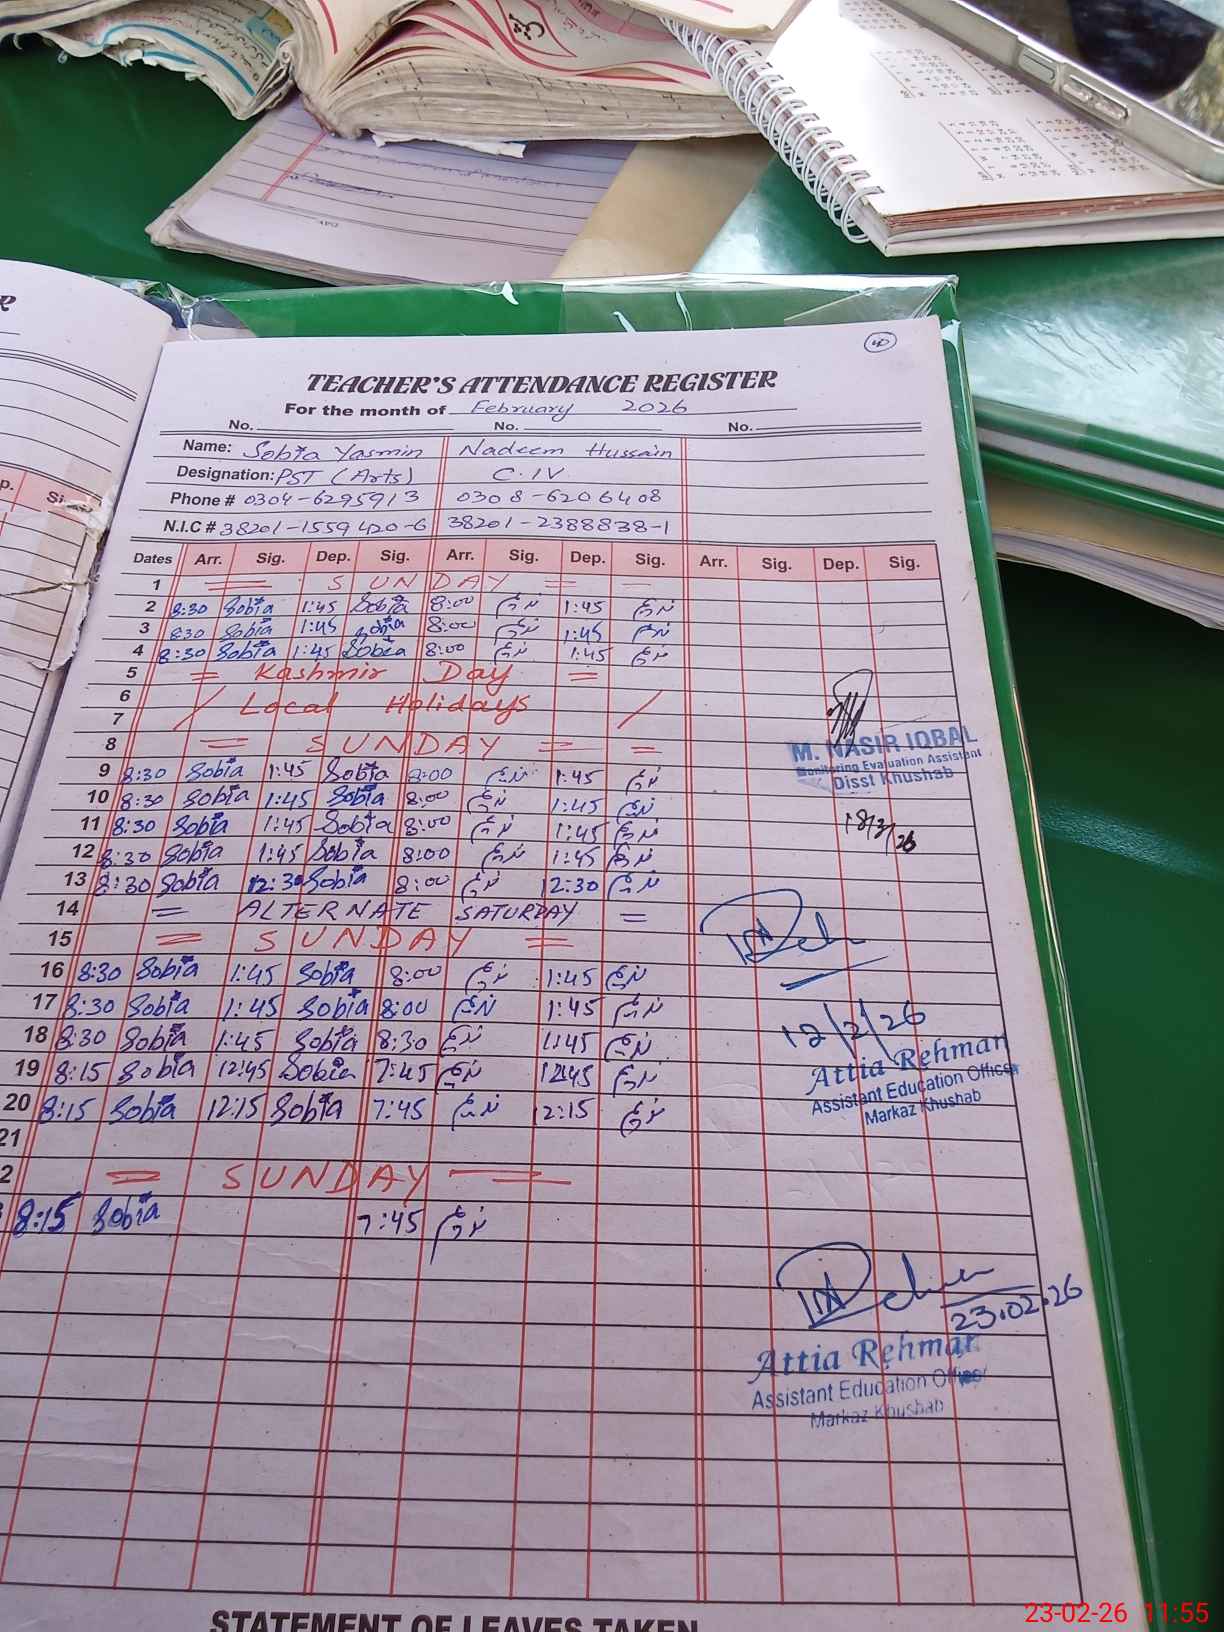 40
TEACHER'S ATTENDANCE REGISTER
For the month of February 2026
No. No. No.
Name: Sobia Yasmin Nadeem Hussain
Designation: PST (Arts) C.IV
Phone # 0304-6295913 0308-6206408
N.I.C # 38201-1559420-6 38201-2388838-1
Dates Arr. Sig. Dep. Sig. Arr. Sig. Dep. Sig. Arr. Sig. Dep. Sig.
1 = SUNDAY = -
2 8:30 Sobia 1:45 Sobia 8:00 ندیم 1:45 ندیم
3 8:30 Sobia 1:45 Sobia 8:00 ندیم 1:45 ندیم
4 8:30 Sobia 1:45 Sobia 8:00 ندیم 1:45 ندیم
5 = Kashmir Day =
6 / Local Holidays /
7
8 = SUNDAY = =
9 8:30 Sobia 1:45 Sobia 8:00 ندیم 1:45 ندیم
10 8:30 Sobia 1:45 Sobia 8:00 ندیم 1:45 ندیم
11 8:30 Sobia 1:45 Sobia 8:00 ندیم 1:45 ندیم
12 8:30 Sobia 1:45 Sobia 8:00 ندیم 1:45 ندیم
13 8:30 Sobia 12:30 Sobia 8:00 ندیم 12:30 ندیم
14 = ALTERNATE SATURDAY =
15 = SUNDAY =
16 8:30 Sobia 1:45 Sobia 8:00 ندیم 1:45 ندیم
17 8:30 Sobia 1:45 Sobia 8:00 ندیم 1:45 ندیم
18 8:30 Sobia 1:45 Sobia 8:30 ندیم 1:45 ندیم
19 8:15 Sobia 12:45 Sobia 7:45 ندیم 12:45 ندیم
20 8:15 Sobia 12:15 Sobia 7:45 ندیم 12:15 ندیم
21
2 = SUNDAY =
8:15 Sobia 7:45 ندیم
M. NASIR IQBAL
Monitoring Evaluation Assistant
Disst Khushab
18/2/26
12/2/26
Attia Rehman
Assistant Education Officer
Markaz Khushab
23.02.26
Attia Rehman
Assistant Education Officer
Markaz Khushab
STATEMENT OF LEAVES TAKEN
23-02-26 11:55